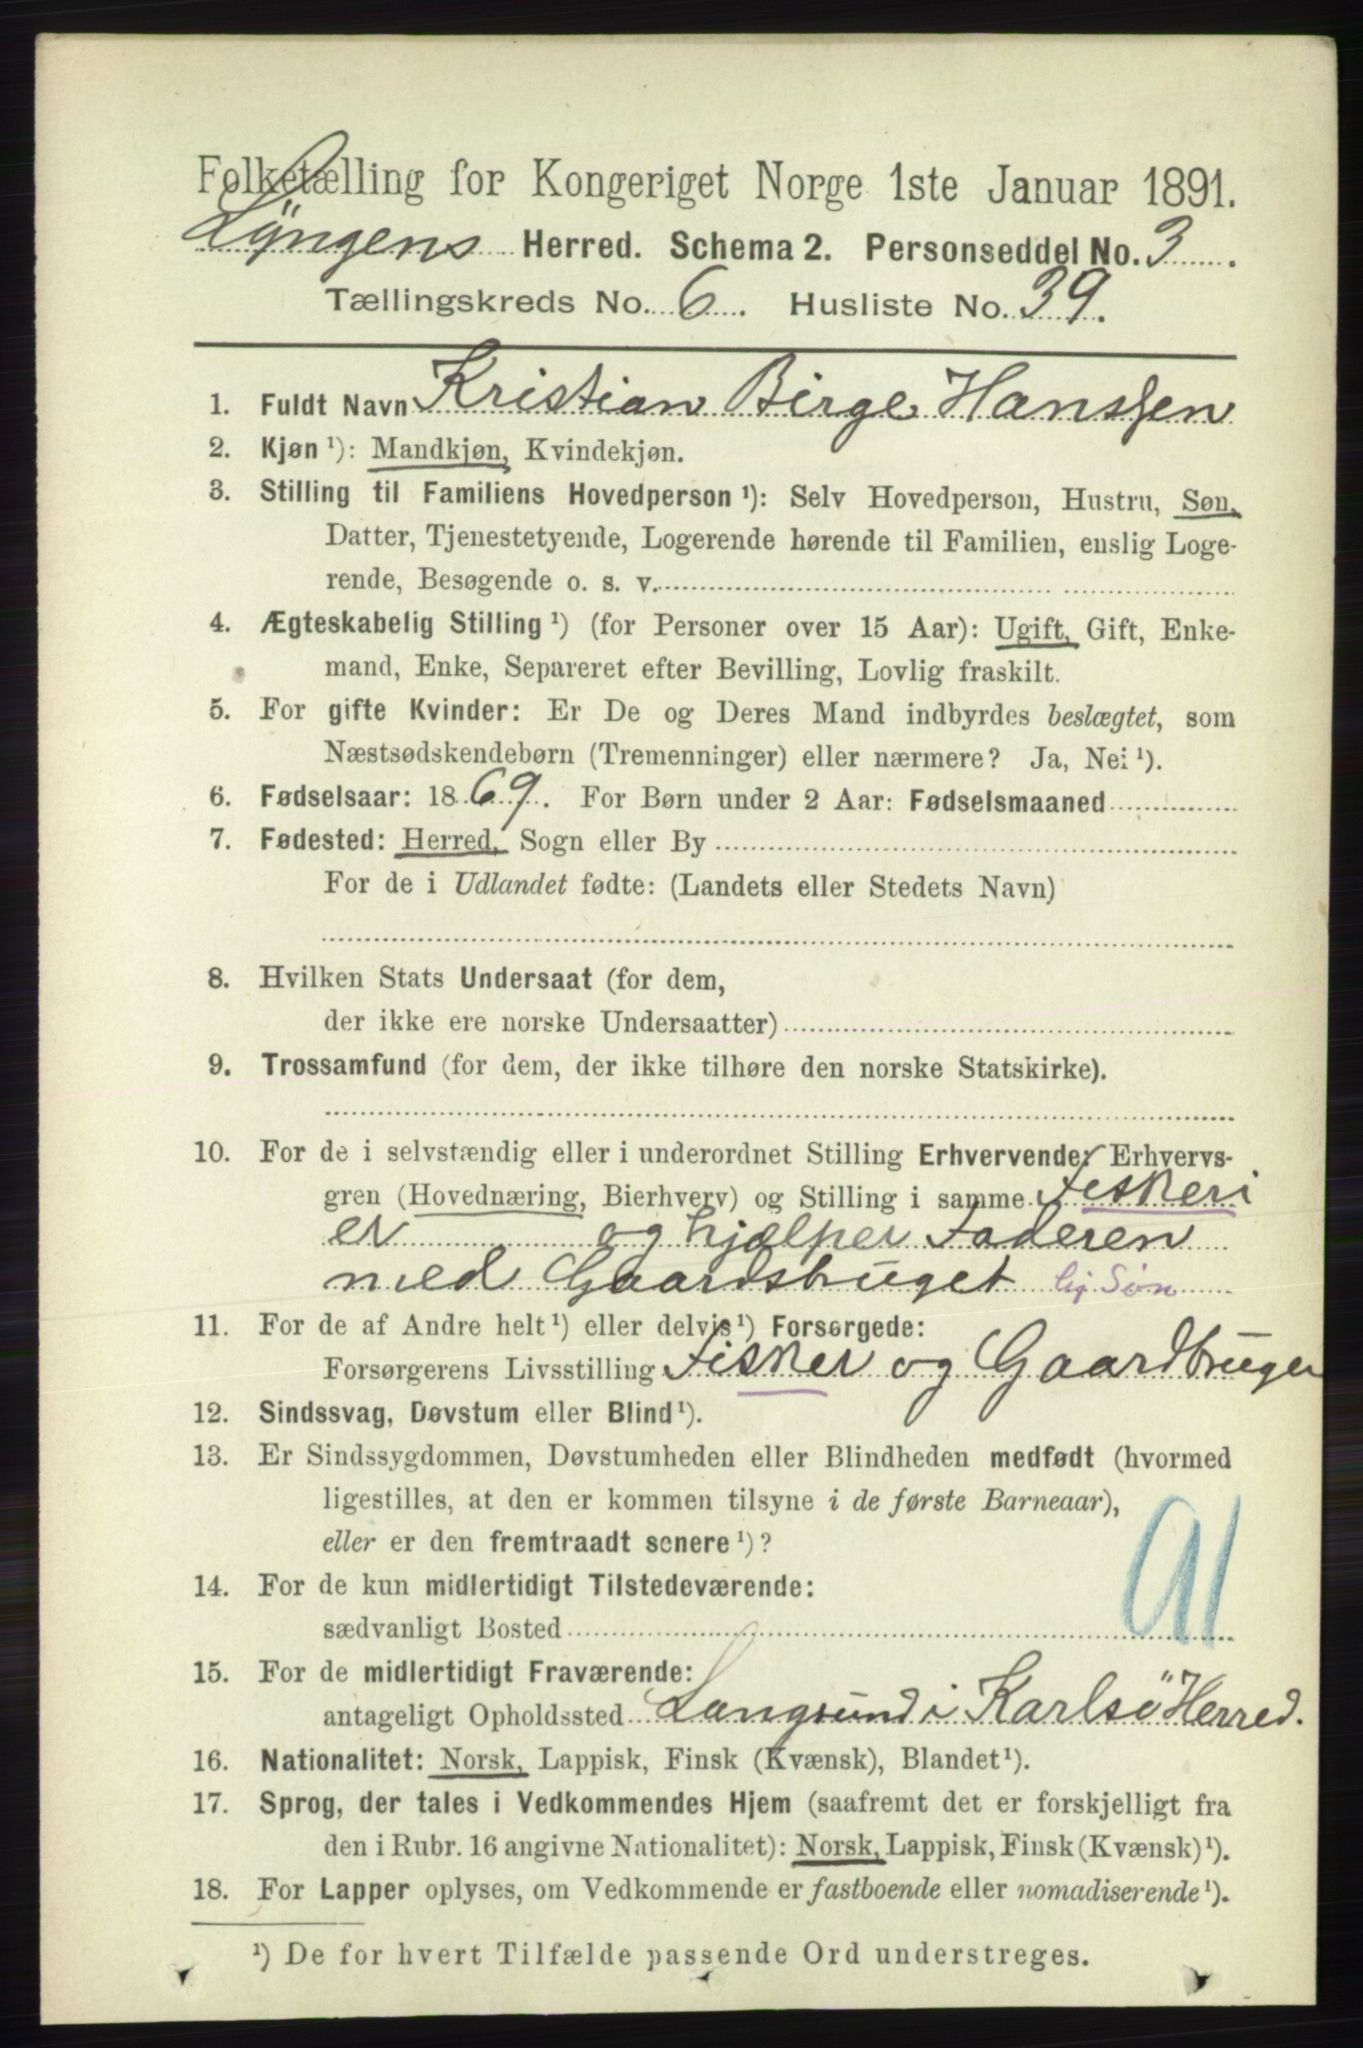 Folketælling for Kongeriget Norge 1ste Januar 1891.
Lyngens Herred. Schema 2. Personseddel No. 3.
Tællingskreds No. 6. Husliste No. 39.
1. Fuldt Navn Kristian Birge Hanssen
2. Kjøn ¹): Mandkjøn, Kvindekjøn.
3. Stilling til Familiens Hovedperson ¹): Selv Hovedperson, Hustru, Søn,
Datter, Tjenestetyende, Logerende hørende til Familien, enslig Loge-
rende, Besøgende o. s. v.
4. Ægteskabelig Stilling ¹) (for Personer over 15 Aar): Ugift, Gift, Enke-
mand, Enke, Separeret efter Bevilling, Lovlig fraskilt.
5. For gifte Kvinder: Er De og Deres Mand indbyrdes beslægtet, som
Næstsødskendebørn (Tremenninger) eller nærmere? Ja, Nei ¹).
6. Fødselsaar: 1869. For Børn under 2 Aar: Fødselsmaaned
7. Fødested: Herred, Sogn eller By
For de i Udlandet fødte: (Landets eller Stedets Navn)
8. Hvilken Stats Undersaat (for dem,
der ikke ere norske Undersaatter)
9. Trossamfund (for dem, der ikke tilhøre den norske Statskirke).
10. For de i selvstændig eller i underordnet Stilling Erhvervende: Erhvervs-
gren (Hovednæring, Bierhverv) og Stilling i samme Fiskeri
er og hjælper Faderen
med Gaardsbruget lig Søn
11. For de af Andre helt ¹) eller delvis ¹) Forsørgede:
Forsørgerens Livsstilling Fisker og Gaardbruger
12. Sindssvag, Døvstum eller Blind ¹).
13. Er Sindssygdommen, Døvstumheden eller Blindheden medfødt (hvormed
ligestilles, at den er kommen tilsyne i de første Barneaar),
eller er den fremtraadt senere ¹)?
14. For de kun midlertidigt Tilstedeværende:
sædvanligt Bosted 91
15. For de midlertidigt Fraværende:
antageligt Opholdssted Langsund i Karlsö Herred.
16. Nationalitet: Norsk, Lappisk, Finsk (Kvænsk), Blandet ¹).
17. Sprog, der tales i Vedkommendes Hjem (saafremt det er forskjelligt fra
den i Rubr. 16 angivne Nationalitet): Norsk, Lappisk, Finsk (Kvænsk) ¹).
18. For Lapper oplyses, om Vedkommende er fastboende eller nomadiserende ¹).
¹) De for hvert Tilfælde passende Ord understreges.